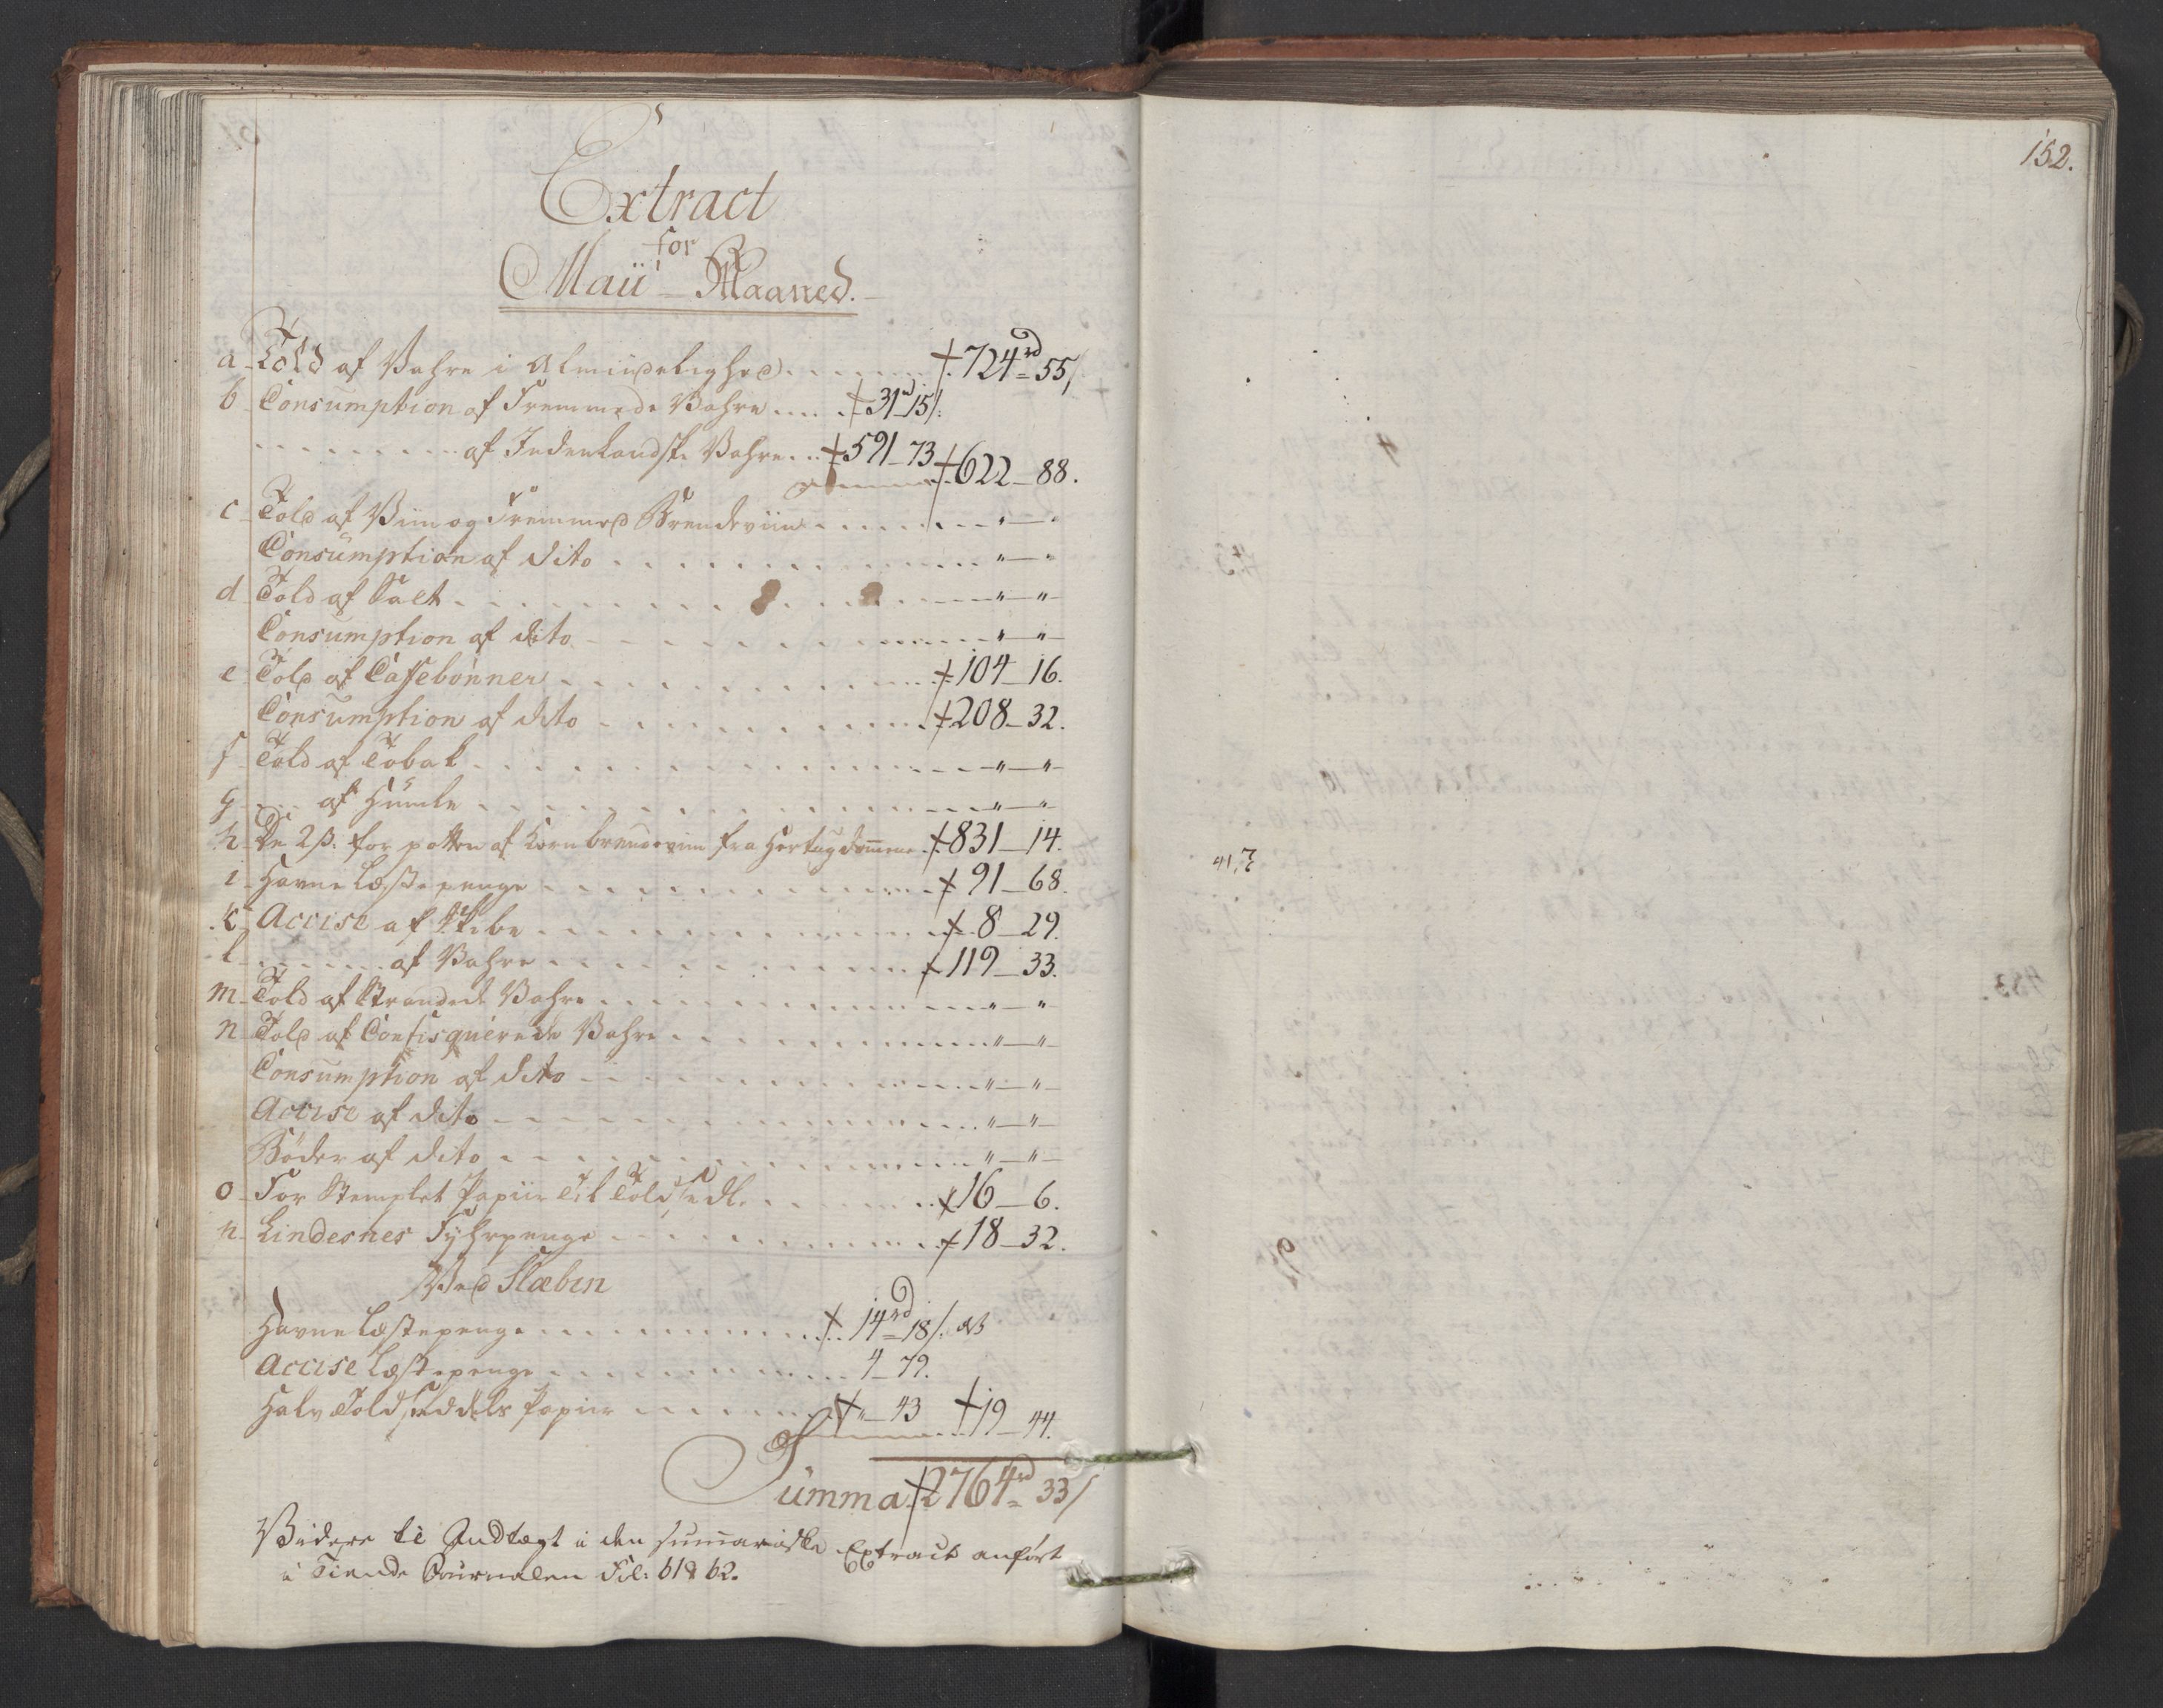 Extract
for
Maii Maaned.
a Told af Vahre i Almindelighed . . . 724rd 55/
b Consumption af Fremmede Vahre . . . 31rd 15/:
. . . af Indenlandske Vahre . . . 591 - 73 622 - 88.
c Told af Viin og Fremmed Brendeviin . . . " - "
Consumption af dito . . . " - "
d Told af Salt . . . " - "
Consumption af dito . . . " - "
e Told af Caffebønner . . . 104 - 16.
Consumption af dito . . . 208 - 32.
f Told af Tobak . . . " - "
g . . . af Humle . . . " - "
h De 2 ß: for potten af Kornbrendeviin fra Hertugdømmene 831 - 14.
i Havne Læstepenge . . . 91 - 68.
k Accise af Skibe . . . 8 - 29.
l . . . af Vahre . . . 119 - 33.
m Told af Strandede Vahre . . . " - "
n Told af Confisquerede Vahre . . . " - "
Consumption af dito . . . " - "
Accise af dito . . . " - "
Bøder af dito . . . " - "
o For Stemplet Papiir til Told Sedl. . . . 16 - 6.
p Lindesnes Fyhrpenge . . . 18 - 32.
Ved Flæben
Havne Læstepenge . . . 14rd 18/.
Accise Læstepenge . . . 4 - 79.
Halv Told Seddels Papiir . . . " - 43 19 - 44.
Summa 2764rd 33/
Videre til Indtægt i den summariske Extract anført
i Tiende Journalen Fol: 61 & 62.
152.